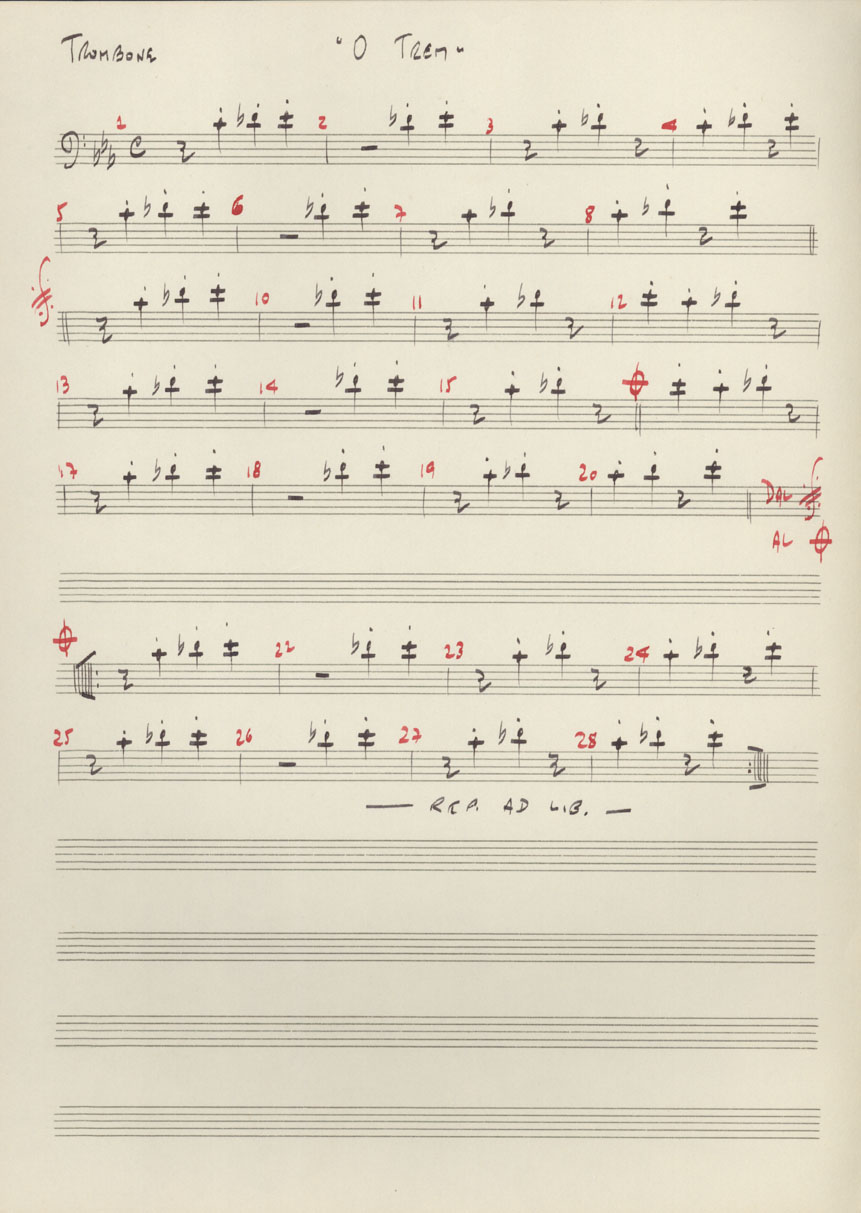 TROMBONE "O TREM"
1 2 3 4
5 6 7 8
10 11 12
13 14 15
17 18 19 20 DAL
AL
22 23 24
25 26 27 28
REP. AD LIB.